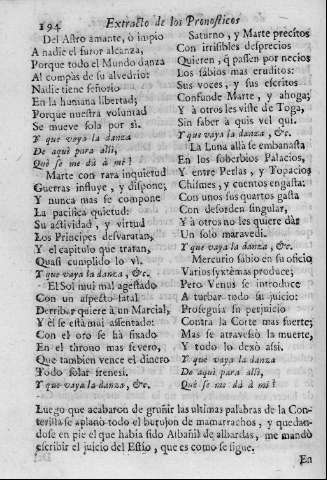 194 Extracto de los Pronosticos
Del Astro amante, ò impio
A nadie el furor alcanza,
Porque todo el Mundo danza
Al compàs de su alvedrio:
Nadie tiene señorìo
En la humana libertad;
Porque nuestra voluntad
Se mueve sola por sì.
Y que vaya la danza
De aqui para alli,
Què se me dà à mi?
Marte con rara inquietud
Guerras influye, y dispone;
Y nunca mas se compone
La pacifica quietud:
Su actividad, y virtud
Los Principes desvaratan,
Y el capitulo que tratan,
Quasi cumplido lo vì.
Y que vaya la danza, &c.
El Sol mui mal agestado
Con un aspecto fatal
Derribar quiere à un Marcial,
Y èl se està mui assentado:
Con el oro se ha fixado
En el throno mas severo,
Que tambien vence el dinero
Todo solar frenesì.
Y que vaya la danza, &c.
Saturno, y Marte precitos
Con irrisibles desprecios
Quieren, q̃ passen por necios
Los sabios mas eruditos:
Sus voces, y sus escritos
Confunde Marte, y ahoga;
Y à otros les viste de Toga,
Sin saber à quis vel qui.
Y que vaya la danza, &c.
La Luna allà se embanasta
En los soberbios Palacios,
Y entre Perlas, y Topacios
Chismes, y cuentos engasta:
Con unos sus quartos gasta
Con desorden singular,
Y à otros no les quiere dàr
Un solo maravedi.
Y que vaya la danza, &c.
Mercurio sabio en su oficio
Varios systèmas produce;
Pero Venus se introduce
A turbar todo su juicio:
Proseguia su perjuicio
Contra la Corte mas fuerte;
Mas se atravesò la muerte,
Y todo lo dexò assi.
Y que vaya la danza
De aqui para alli,
Què se me dà à mi?
Luego que acabaron de gruñir las ultimas palabras de la Con-
terilla se aplanò todo el burujon de mamarrachos, y quedan-
dose en pie el que havia sido Albañil de albardas, me mandò
escribir el juicio del Estio, que es como se sigue.
En